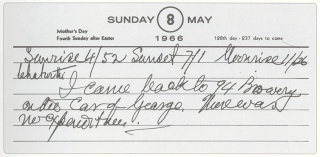 SUNDAY 8 MAY
Mother's Day
Fourth Sunday after Easter
1966
128th day - 237 days to come
Sunrise 4/52 Sunset 7/1 Moonrise 11/26
I came back to 94 Bowery
on the Car of George. There was
no